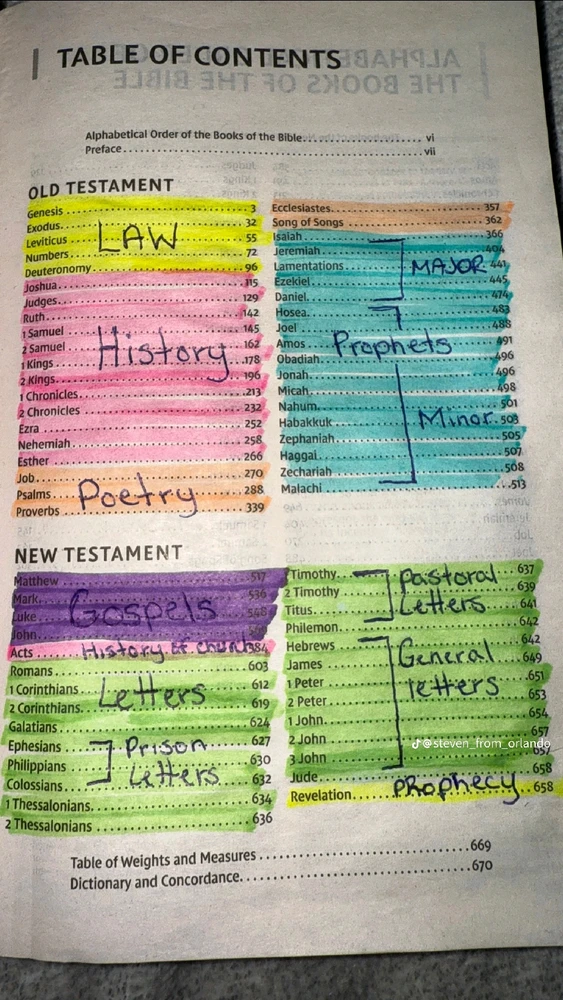 TABLE OF CONTENTS
Alphabetical Order of the Books of the Bible vi
Preface vii
OLD TESTAMENT
Genesis 3
Exodus 32
LAW
Leviticus 55
Numbers 72
Deuteronomy 96
Joshua 115
Judges 129
Ruth 142
1 Samuel 145
2 Samuel 162
History
1 Kings 178
2 Kings 196
1 Chronicles 213
2 Chronicles 232
Ezra 252
Nehemiah 258
Esther 266
Job 270
Psalms 288
Poetry
Proverbs 339
Ecclesiastes 357
Song of Songs 362
Isaiah 366
Jeremiah 404
Lamentations 441
MAJOR
Ezekiel 445
Daniel 474
Hosea 483
Joel 488
Amos 491
Prophets
Obadiah 496
Jonah 496
Micah 498
Nahum 501
Habakkuk 503
Minor
Zephaniah 505
Haggai 507
Zechariah 508
Malachi 513
NEW TESTAMENT
Matthew 517
Mark 536
Gospels
Luke 548
John
Acts 584
History of church
Romans 603
1 Corinthians 612
Letters
2 Corinthians 619
Galatians 624
Ephesians 627
Prison
Philippians 630
Letters
Colossians 632
1 Thessalonians 634
2 Thessalonians 636
1 Timothy 637
Pastoral
2 Timothy 639
Letters
Titus 641
Philemon 642
Hebrews 642
General
James 649
letters
1 Peter 651
2 Peter 653
1 John 654
2 John 657
@steven_from_orlando
3 John 657
Jude 658
Revelation 658
Prophecy
Table of Weights and Measures 669
Dictionary and Concordance 670